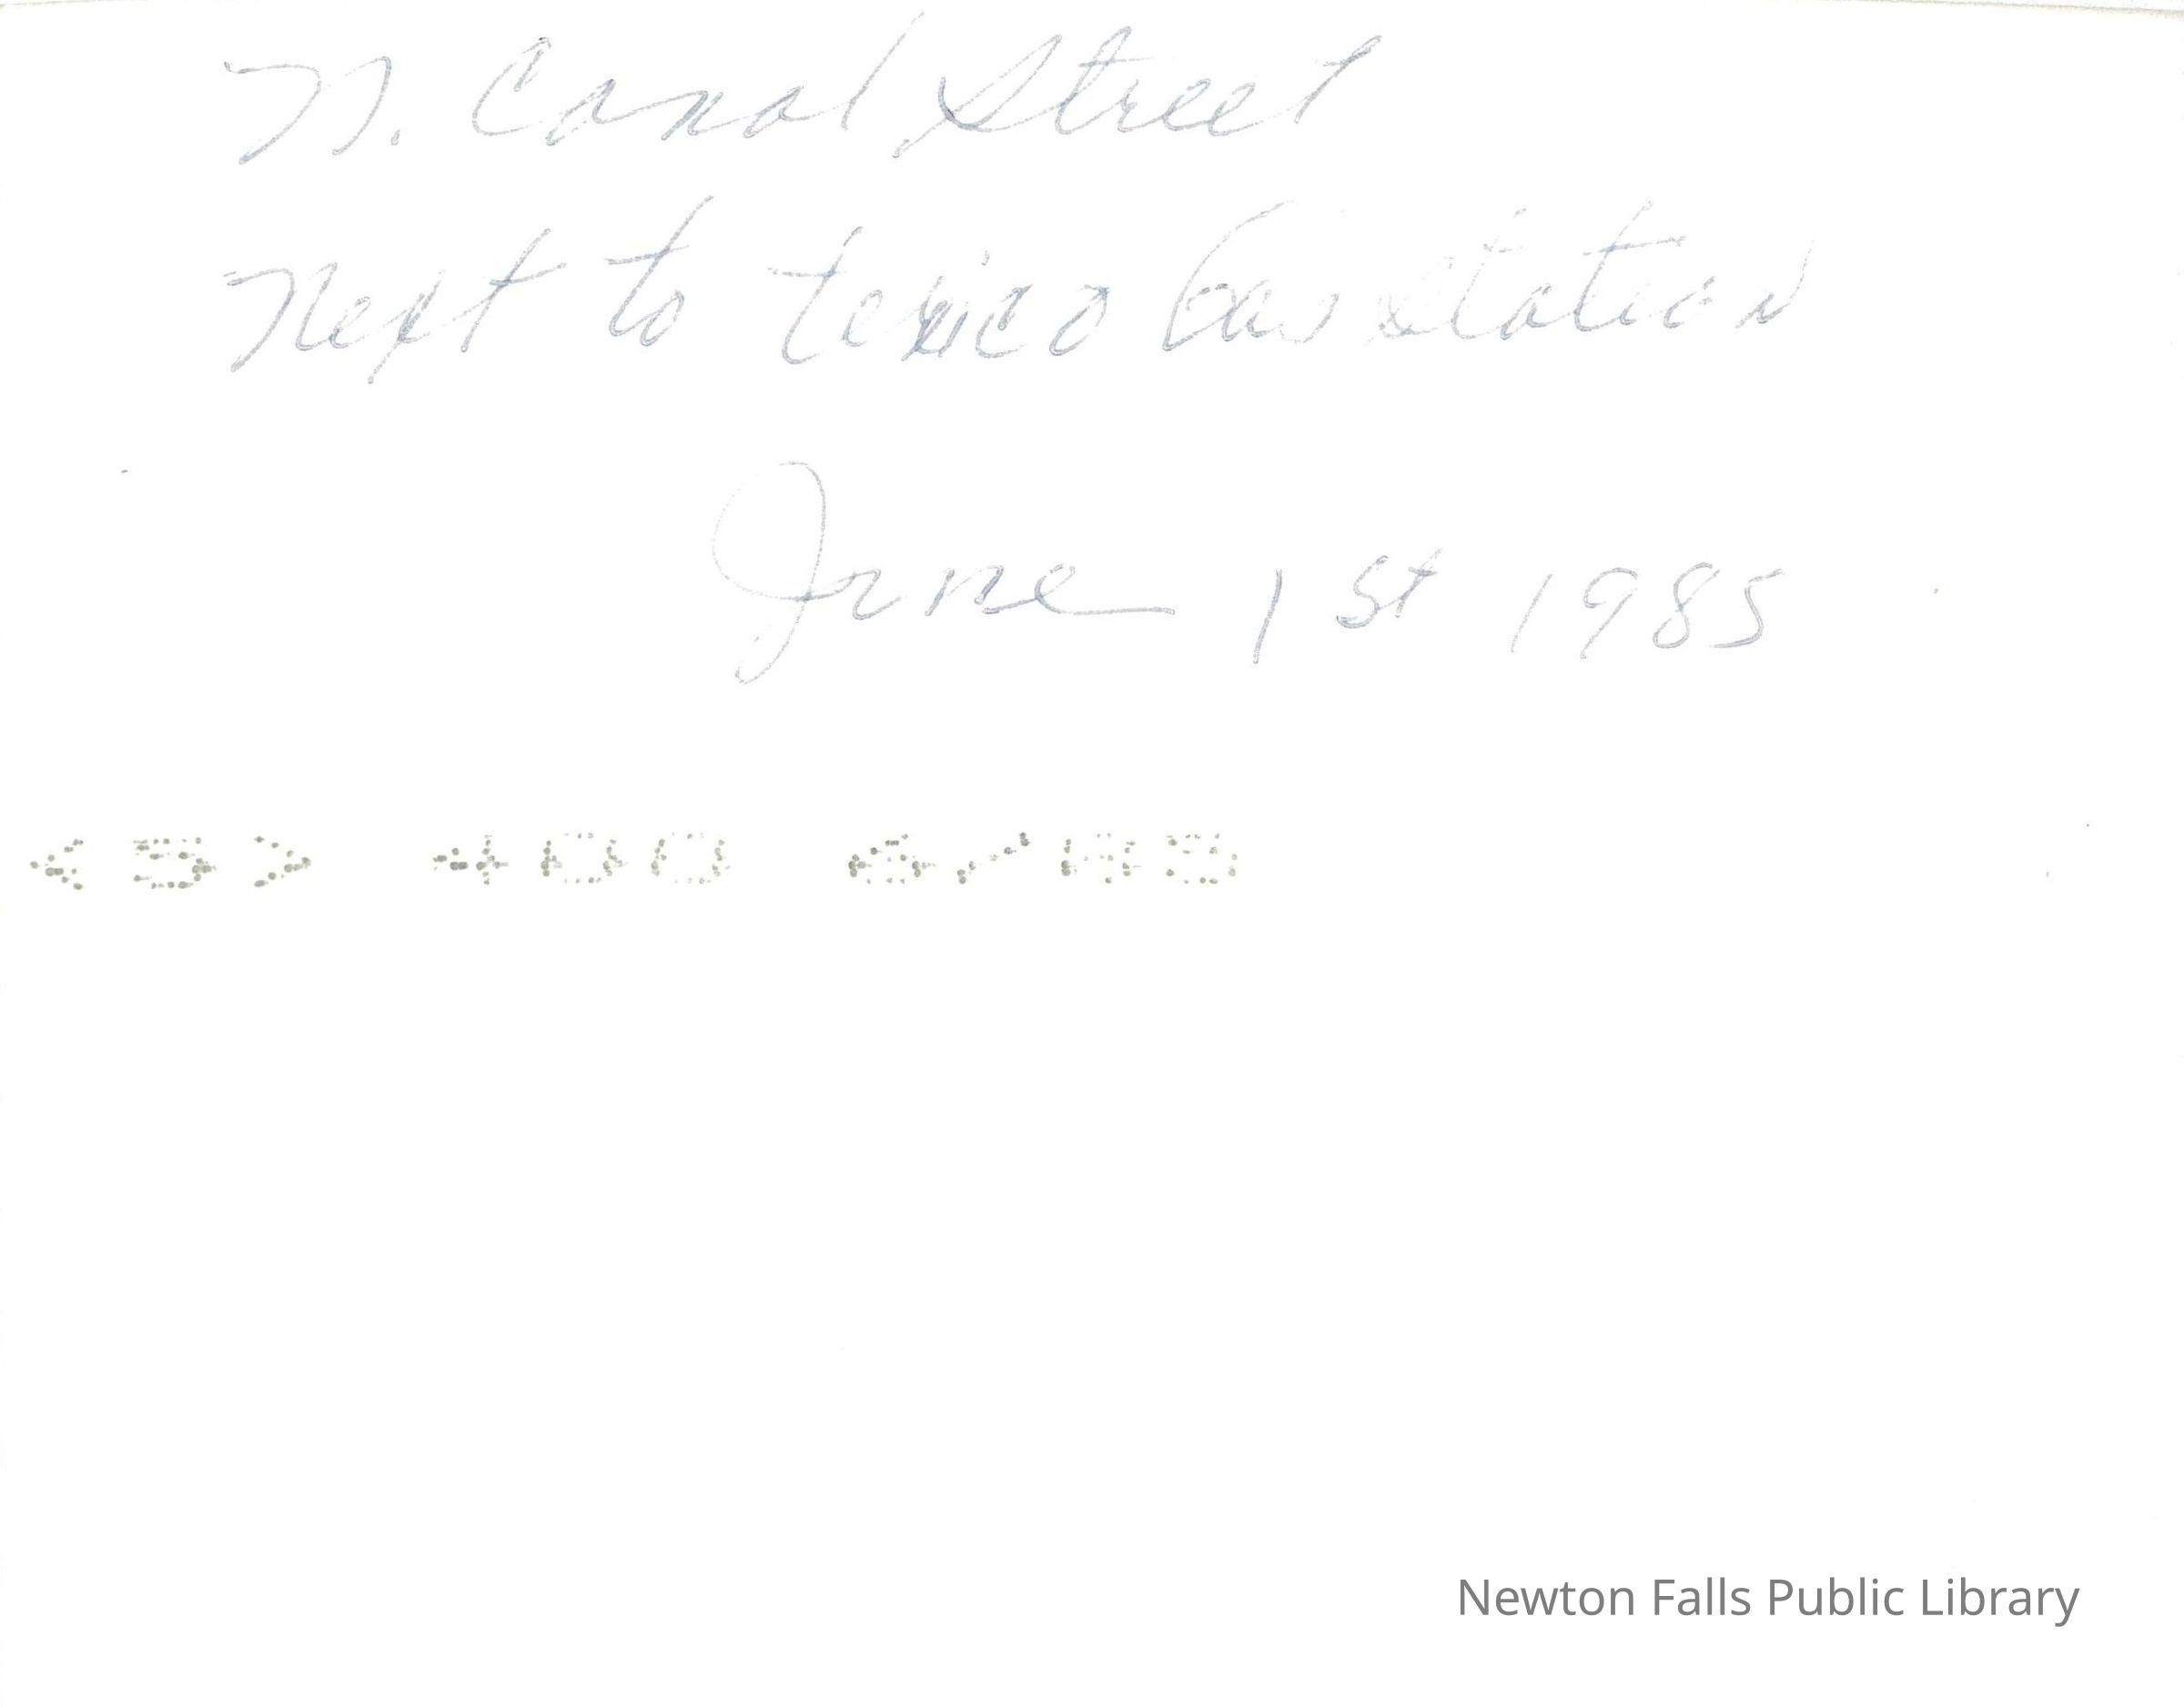 N. Canal Street
Next to texico Gas station
June 1st 1985
<9> 400 6/85
Newton Falls Public Library